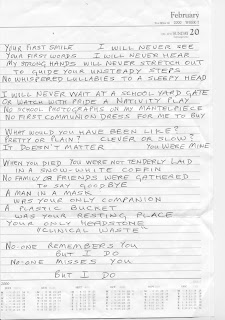 February
2000 WEEK 7
SUNDAY 20
YOUR FIRST SMILE I WILL NEVER SEE
YOUR FIRST WORDS I WILL NEVER HEAR
MY STRONG HANDS WILL NEVER STRETCH OUT
TO GUIDE YOUR UNSTEADY STEPS
NO WHISPERED LULLABIES TO A SLEEPY HEAD
I WILL NEVER WAIT AT A SCHOOL YARD GATE
OR WATCH WITH PRIDE A NATIVITY PLAY
NO SCHOOL PHOTOGRAPHS ON MY MANTELPIECE
NO FIRST COMMUNION DRESS FOR ME TO BUY
WHAT WOULD YOU HAVE BEEN LIKE?
PRETTY OR PLAIN? CLEVER OR SLOW?
IT DOESN'T MATTER YOU WERE MINE
WHEN YOU DIED YOU WERE NOT TENDERLY LAID
IN A SNOW-WHITE COFFIN
NO FAMILY OR FRIENDS WERE GATHERED
TO SAY GOODBYE
A MAN IN A MASK
WAS YOUR ONLY COMPANION
A PLASTIC BUCKET
WAS YOUR RESTING PLACE
YOUR ONLY HEADSTONE
"CLINICAL WASTE"
NO-ONE REMEMBERS YOU
BUT I DO
NO-ONE MISSES YOU
BUT I DO
2000